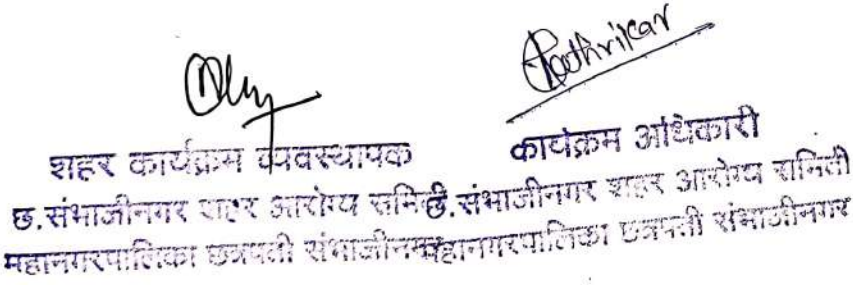 Pathrikar
शहर कार्यक्रम व्यवस्थापक
छ.संभाजीनगर शहर आरोग्य समिती
महानगरपालिका छत्रपती संभाजीनगर
कार्यक्रम अधिकारी
छ.संभाजीनगर शहर आरोग्य समिती
महानगरपालिका छत्रपती संभाजीनगर